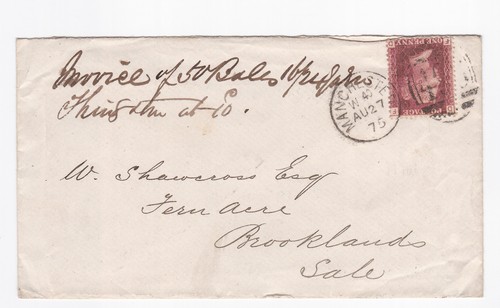 Invoice of 50 Bales
at
MANCHESTER
W 4
AU 27
75
ONE PENNY
W. Shawcross Esq
Fern Acre
Brooklands
Sale